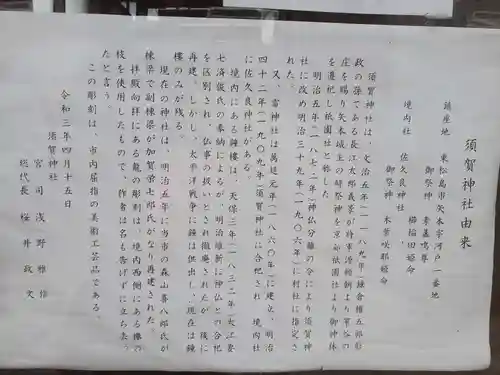 須賀神社由来
鎮座地　東松島市矢本字河戸一番地
御祭神　素盞嗚尊
境内社　佐久良神社　櫛稲田姫命
御祭神　木花咲耶姫命
須賀神社は、文治五年(一一八九年)鎌倉権五郎
政の孫である長江太郎義景が将軍源頼朝より深谷の
庄を賜り矢本城主の
を遷祀し祇園社と称した
明治五年(一八七二年)神仏分離の令により須賀神
社に改め明治三十九年(一九〇六年)に村社に指定さ
れた。
又、當神社は萬延元年(一八六〇年)に建立、明治
四十二年(一九〇九年)須賀神社に合祀され、境内社
に佐久良神社がある。
境内にある鐘楼は、天保三年(一八三二年)大江
七済飯氏の奉納によるが、明治維新に神仏との合祀
を区別され、仏事の扱いとされ撤廃されたが、後に
再建。しかし、太平洋戦争に鐘は供出し、現在は鐘
楼のみが残る。
現在の神社は、明治五年に当市の森山喜八郎氏が
棟梁で副棟梁が加賀営七郎氏がなり再建された。
拝殿向拝にある龍の彫刻は、境内西側にある欅の
枝を使用したもので、作者は名も告げずに立ち去っ
たと言う。
この彫刻は、市内屈指の美術工芸品である。
令和三年四月十五日
須賀神社
宮司　浅野雅作
総代長　桜井政文